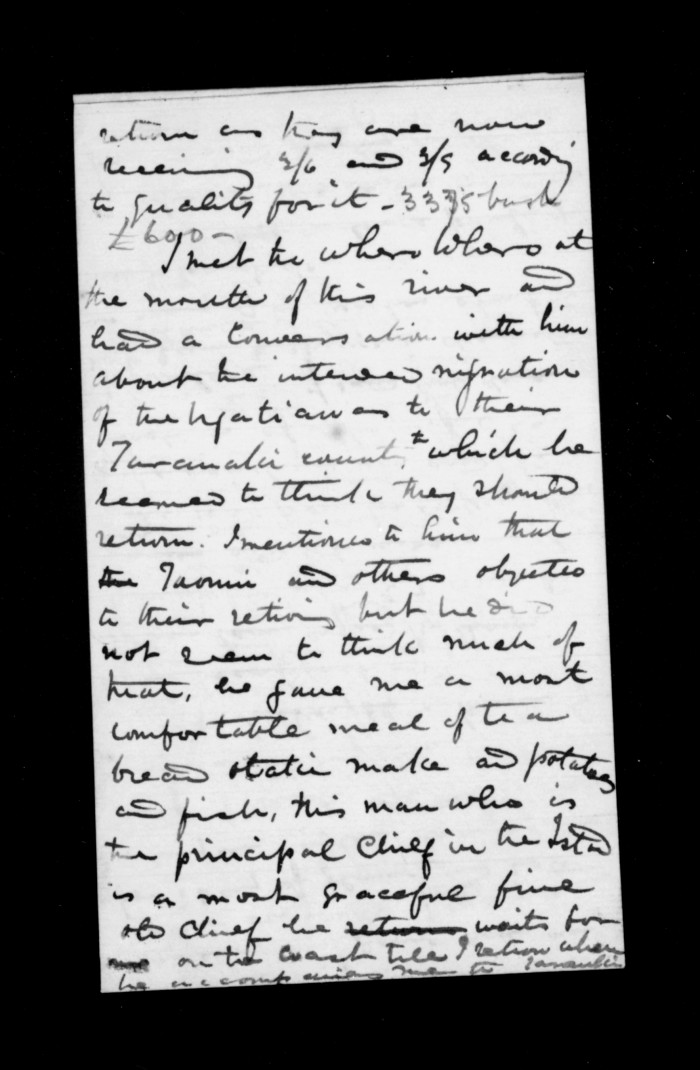 return as they are now
receiving 3/6 and 3/9 according
to quality for it - 3335 bush
£600 -
I met the Whero Whero at
the mouth of this river and
had a conversation with him
about the intended migration
of the Ngatiawas to their
Taranaki country which he
seemed to think they should
return. I mentioned to him that
the Taonui and others objected
to their retiring but he did
not seem to think much of
that, he gave me a most
comfortable meal of tea
bread otaki make and potatoes
and fish, this man who is
the principal Chief in the Island
is a most graceful fine
old Chief he return waits for
me on the coast till I return when
he accompanies me to Taranaki